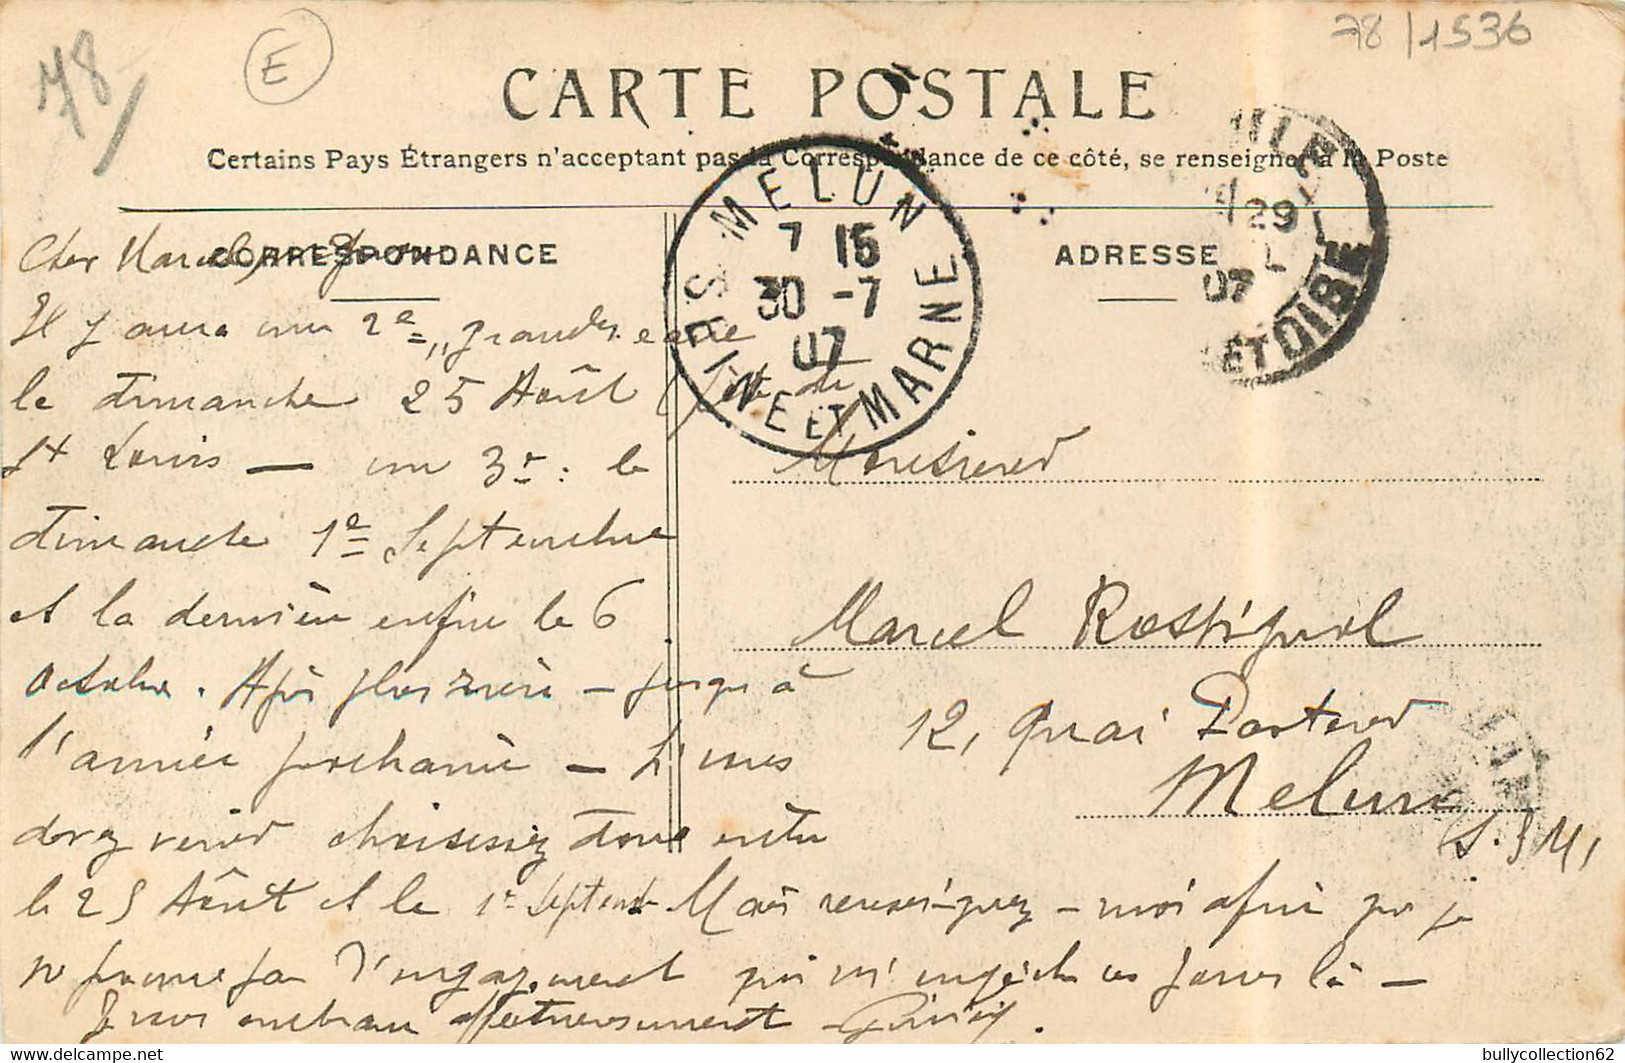 78
E
78/1536
CARTE POSTALE
Certains Pays Étrangers n'acceptant pas la Correspondance de ce côté, se renseigner à la Poste
CORRESPONDANCE
ADRESSE
MELUN
7 15
30 -7
07
SEINE ET MARNE
29
07
ET OISE
Cher Marcel,
Il y aura une 2e grandes eaux
le dimanche 25 Août (fête de
St Louis — une 3e : le
dimanche 1e Septembre
et la dernière enfin le 6
Octobre. Après plus rien — jusqu'à
l'année prochaine — Si vous
devez venir choisissez donc entre
le 25 Août et le 1er Septemb. Mais renseignez-moi afin que je
ne prenne pas d'engagement qui m'empêche ces jours là —
Je vous embrasse affectueusement
Monsieur
Marcel Rossignol
12, Quai Pasteur
Melun
S. & M.
bullycollection62